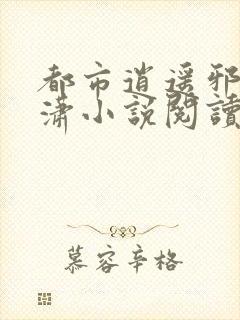 都市逍遥邪
潇小説閱讀
慕容辛格